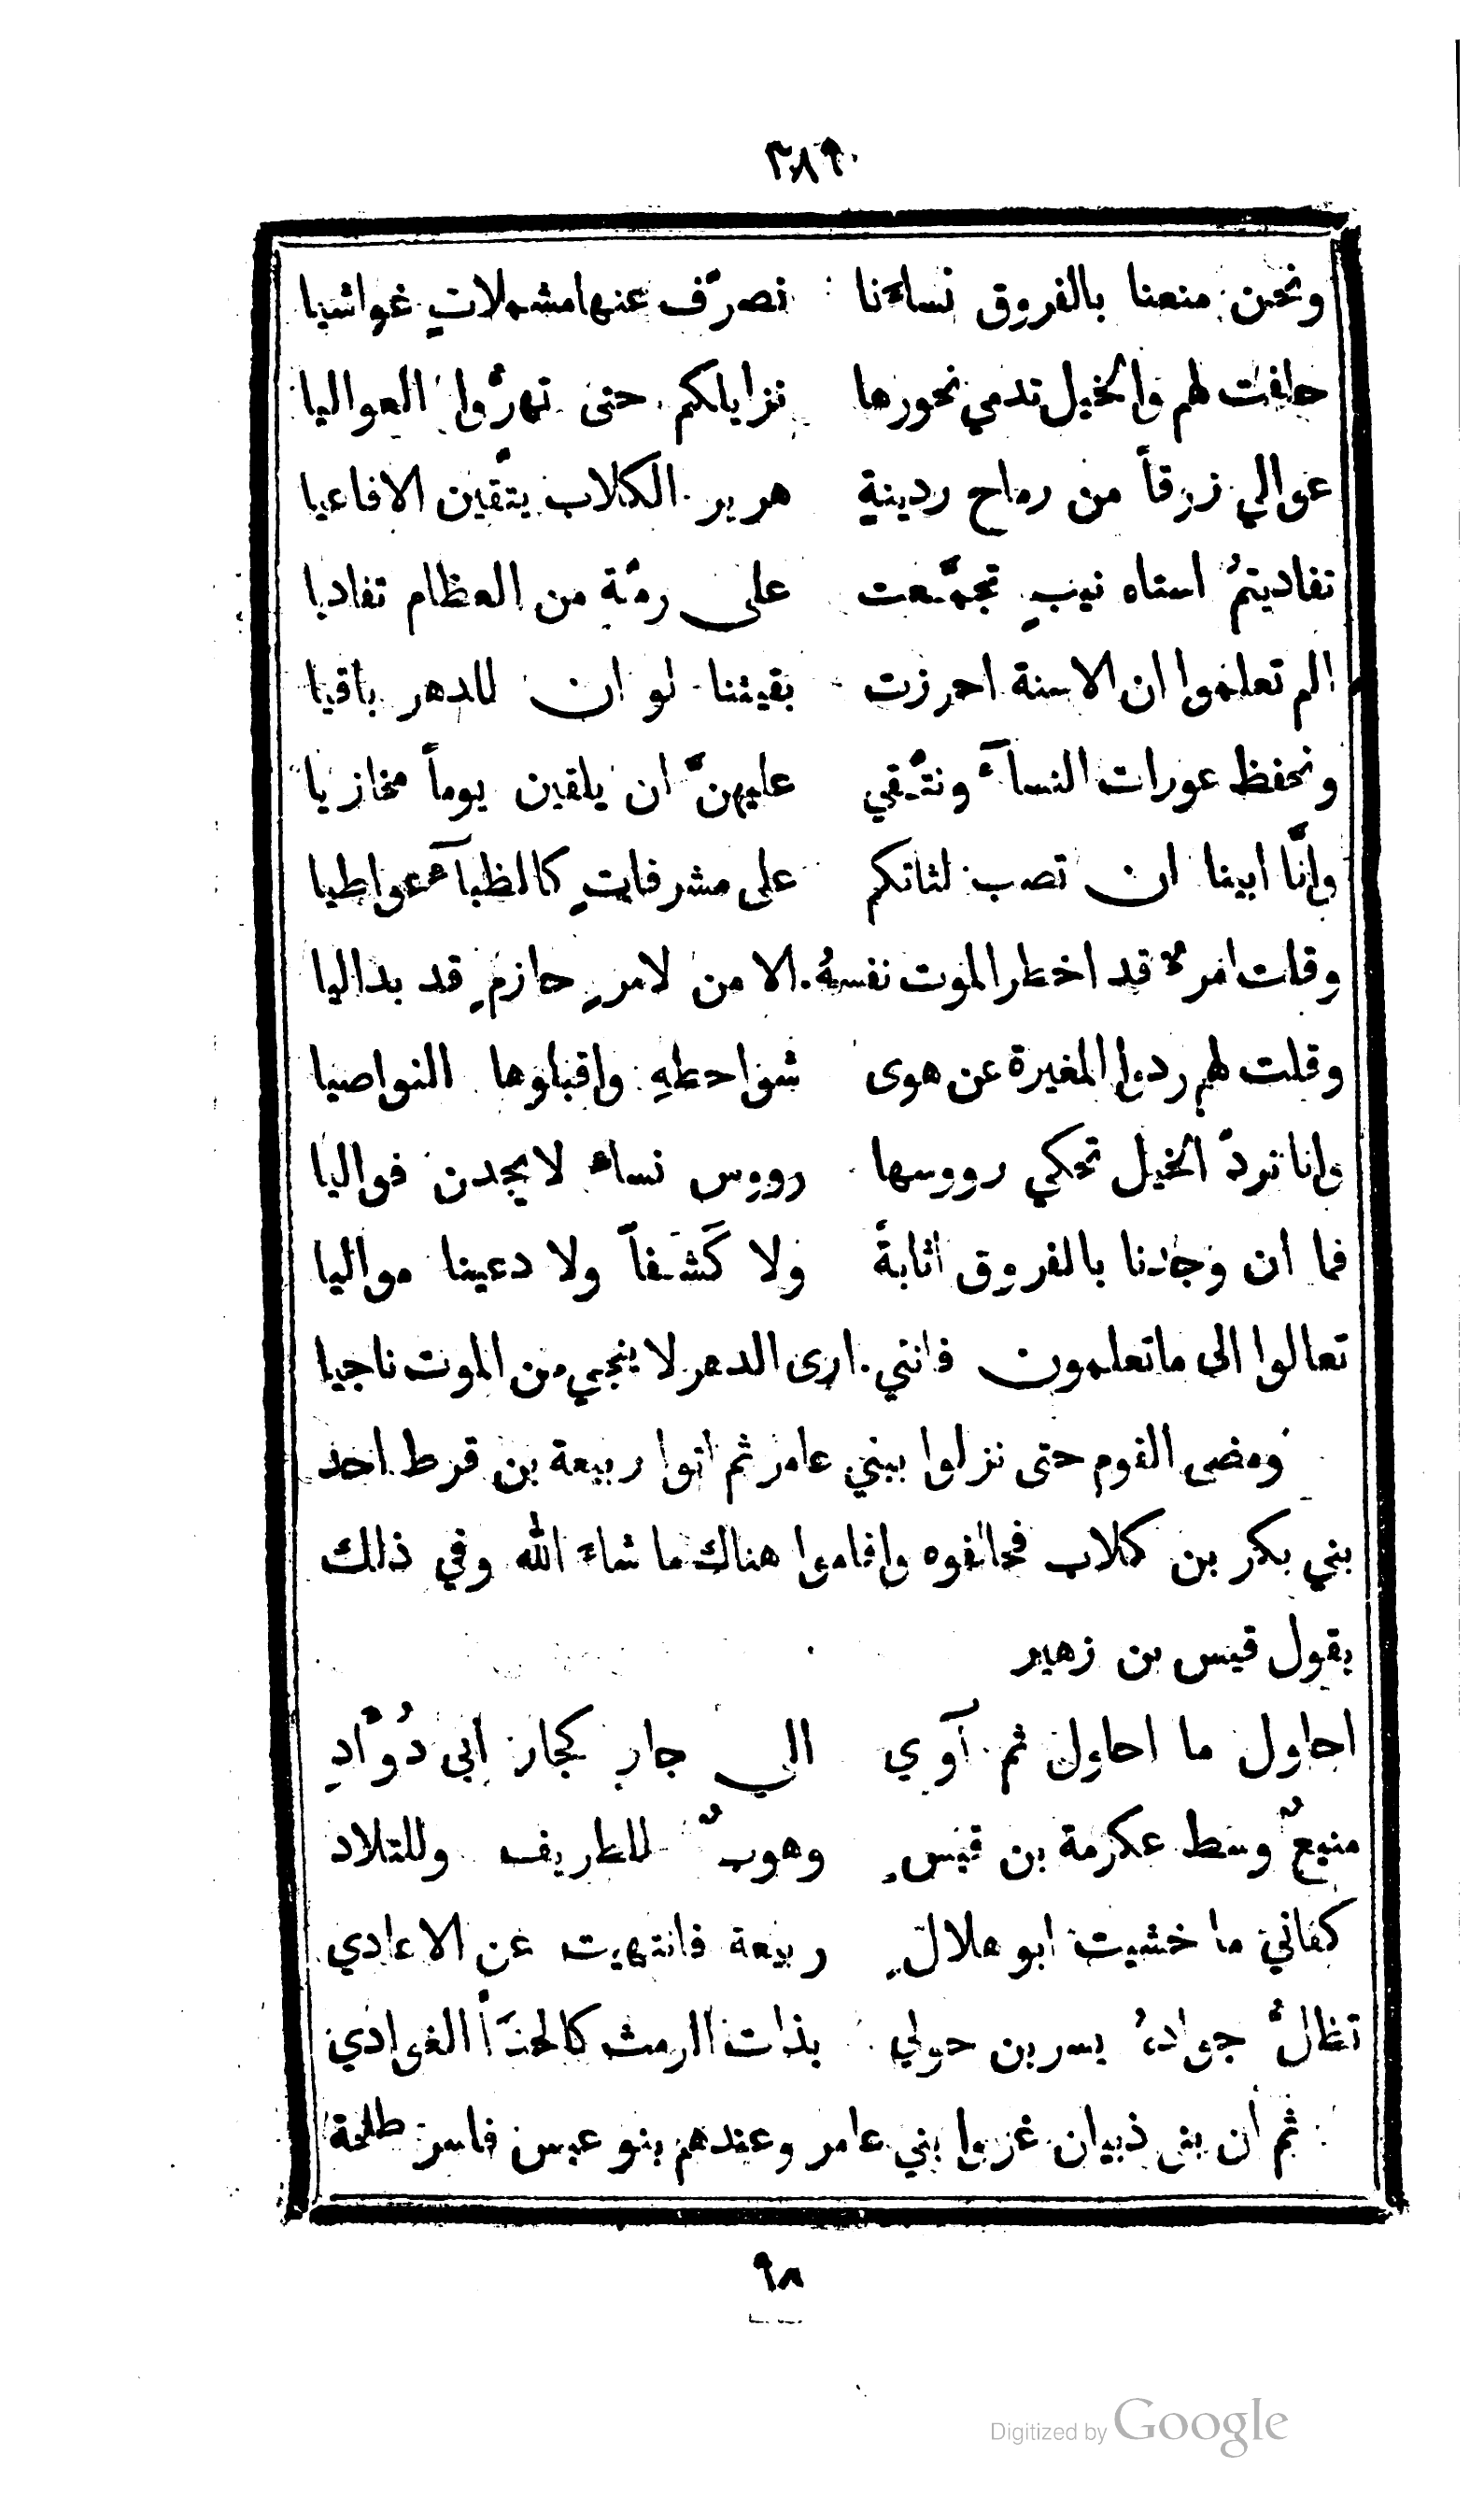 ٢٨٩
ونحن منعنا بالفروق نساءنا نصرّف عنها مشملاتٍ غواشيا
حلفت لهم والخيل تدمي نحورها نزايلكم حتى تهرّوا العواليا
عوالي زرقاً من رماح ردينية هرير الكلاب يتّقين الافاعيا
تفاديتمُ استاه نيبٍ تجمّعت على رمّة من العظام تفاديا
الم تعلموا ان الاسنة احرزت بقيتنا لو ان للدهر باقيا
ونحفظ عورات النسآء ونتّقي عليهنّ ان يلقين يوماً مخازيا
وانّا ابينا ان تصب لثاتكم على مشرفاتٍ كالظبآء عواطيا
وقلت امرءٌ قد اخطر الموت نفسهُ الا من لامرٍ حازمٍ قد بداليا
وقلت لهم ردوا المغيرة عن هوى شواحطهِ واقبلوها النواصيا
وانا نردّ الخيل تحكي رووسها رووس نساء لا يجدن فواليا
فما ان وجدنا بالفروق اثابةً ولا كُشفاً ولا دعينا مواليا
تعالوا الى ما تعلمون فانني ارى الدهر لا ينجي من الموت ناجيا
ومضى القوم حتى نزلوا ببني عامر ثم اتوا ربيعة بن قرط احد
بني بكر بن كلاب فحالفوه واقاموا هناك ما شاء الله وفي ذلك
يقول قيس بن زهير
احاول ما احاول ثم آوي الى جارٍ كجار ابي دُوّادِ
منيعٌ وسط عكرمة بن قيس وهوبٌ للطريف وللتلاد
كفاني ما خشيت ابو هلالٍ ربيعة فانتهيت عن الاعادي
تظلّ جوادهُ يسرين حولي بذات الرمث كالحدَأ الغوادي
ثم ان بني ذبيان غزوا بني عامر وعندهم بنو عبس فاسر طلحة
٩٨
Digitized by Google